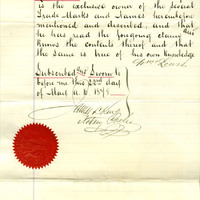 is the exclusive owner of the several
Trade Marks and Names heretofore
mentioned and described, and that
he has read the foregoing claim and
knows the contents thereof and that
the same is true of his own knowledge
Subscribed and Sworn to
before me this 22nd day
of May A.D. 1878
Notary Public